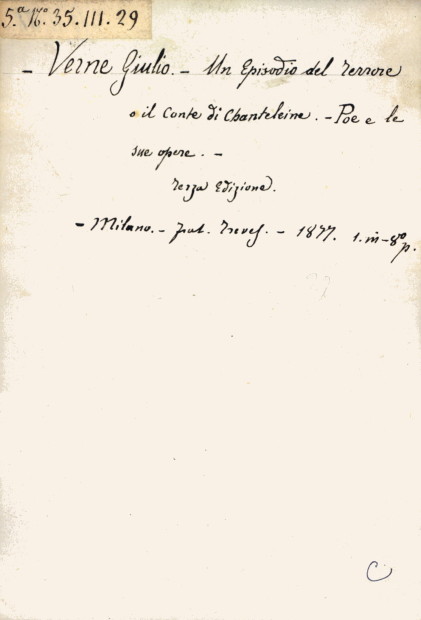 5.ª Nº. 35.III.29
- Verne Giulio. - Un Episodio del Terrore
o il Conte di Chanteleine. - Poe e le
sue opere. -
Terza Edizione.
- Milano. - frat. Treves. - 1877. 1. in-8º p.
C